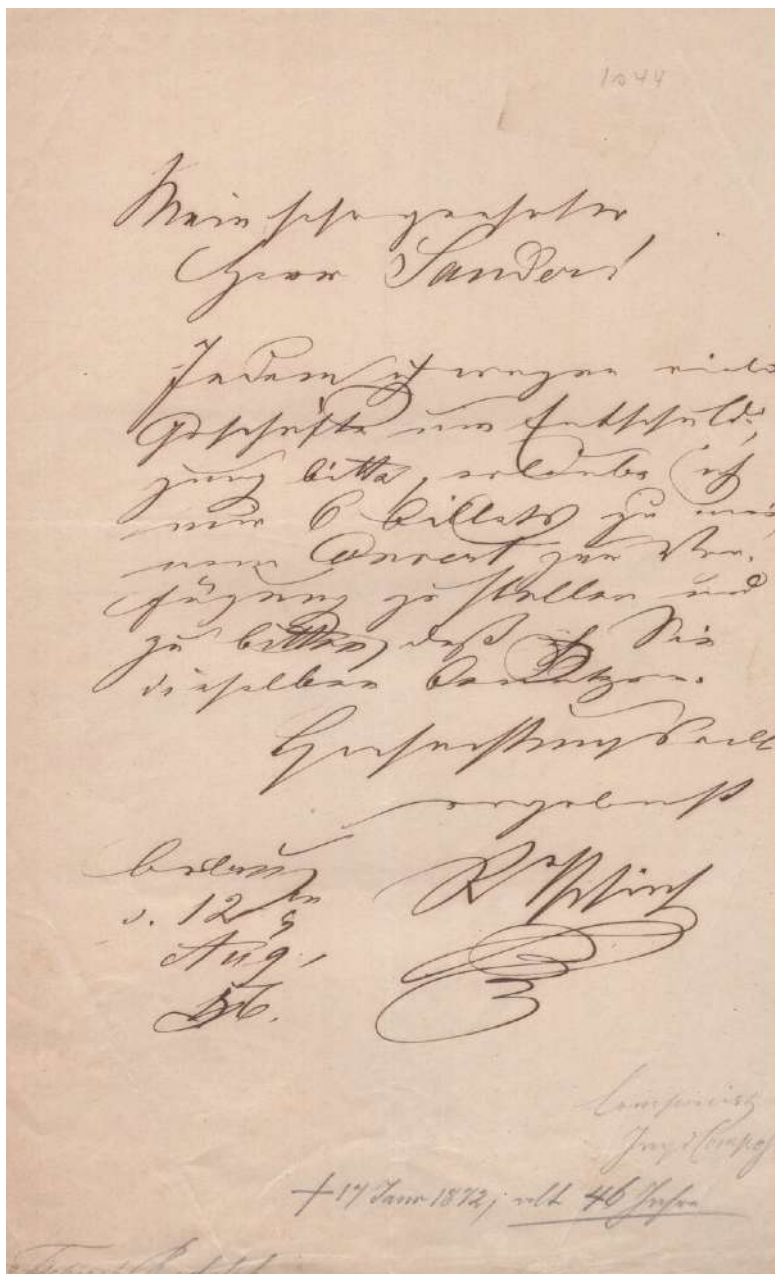 1044
Mein sehr geehrter
Herr Sander!
Indem ich wegen viele
Geschäfte um Entschuldi-
gung bitte, erlaube ich
mir 6 Billets zu mei
nem Concert zur Ver-
fügung zu stellen und
zu bitten, daß Sie
dieselben benutzen.
Hochachtungsvoll
ergebenst
d. 12
Aug.
56.
Componist
† 17 Janr 1872, alt 46 Jahre